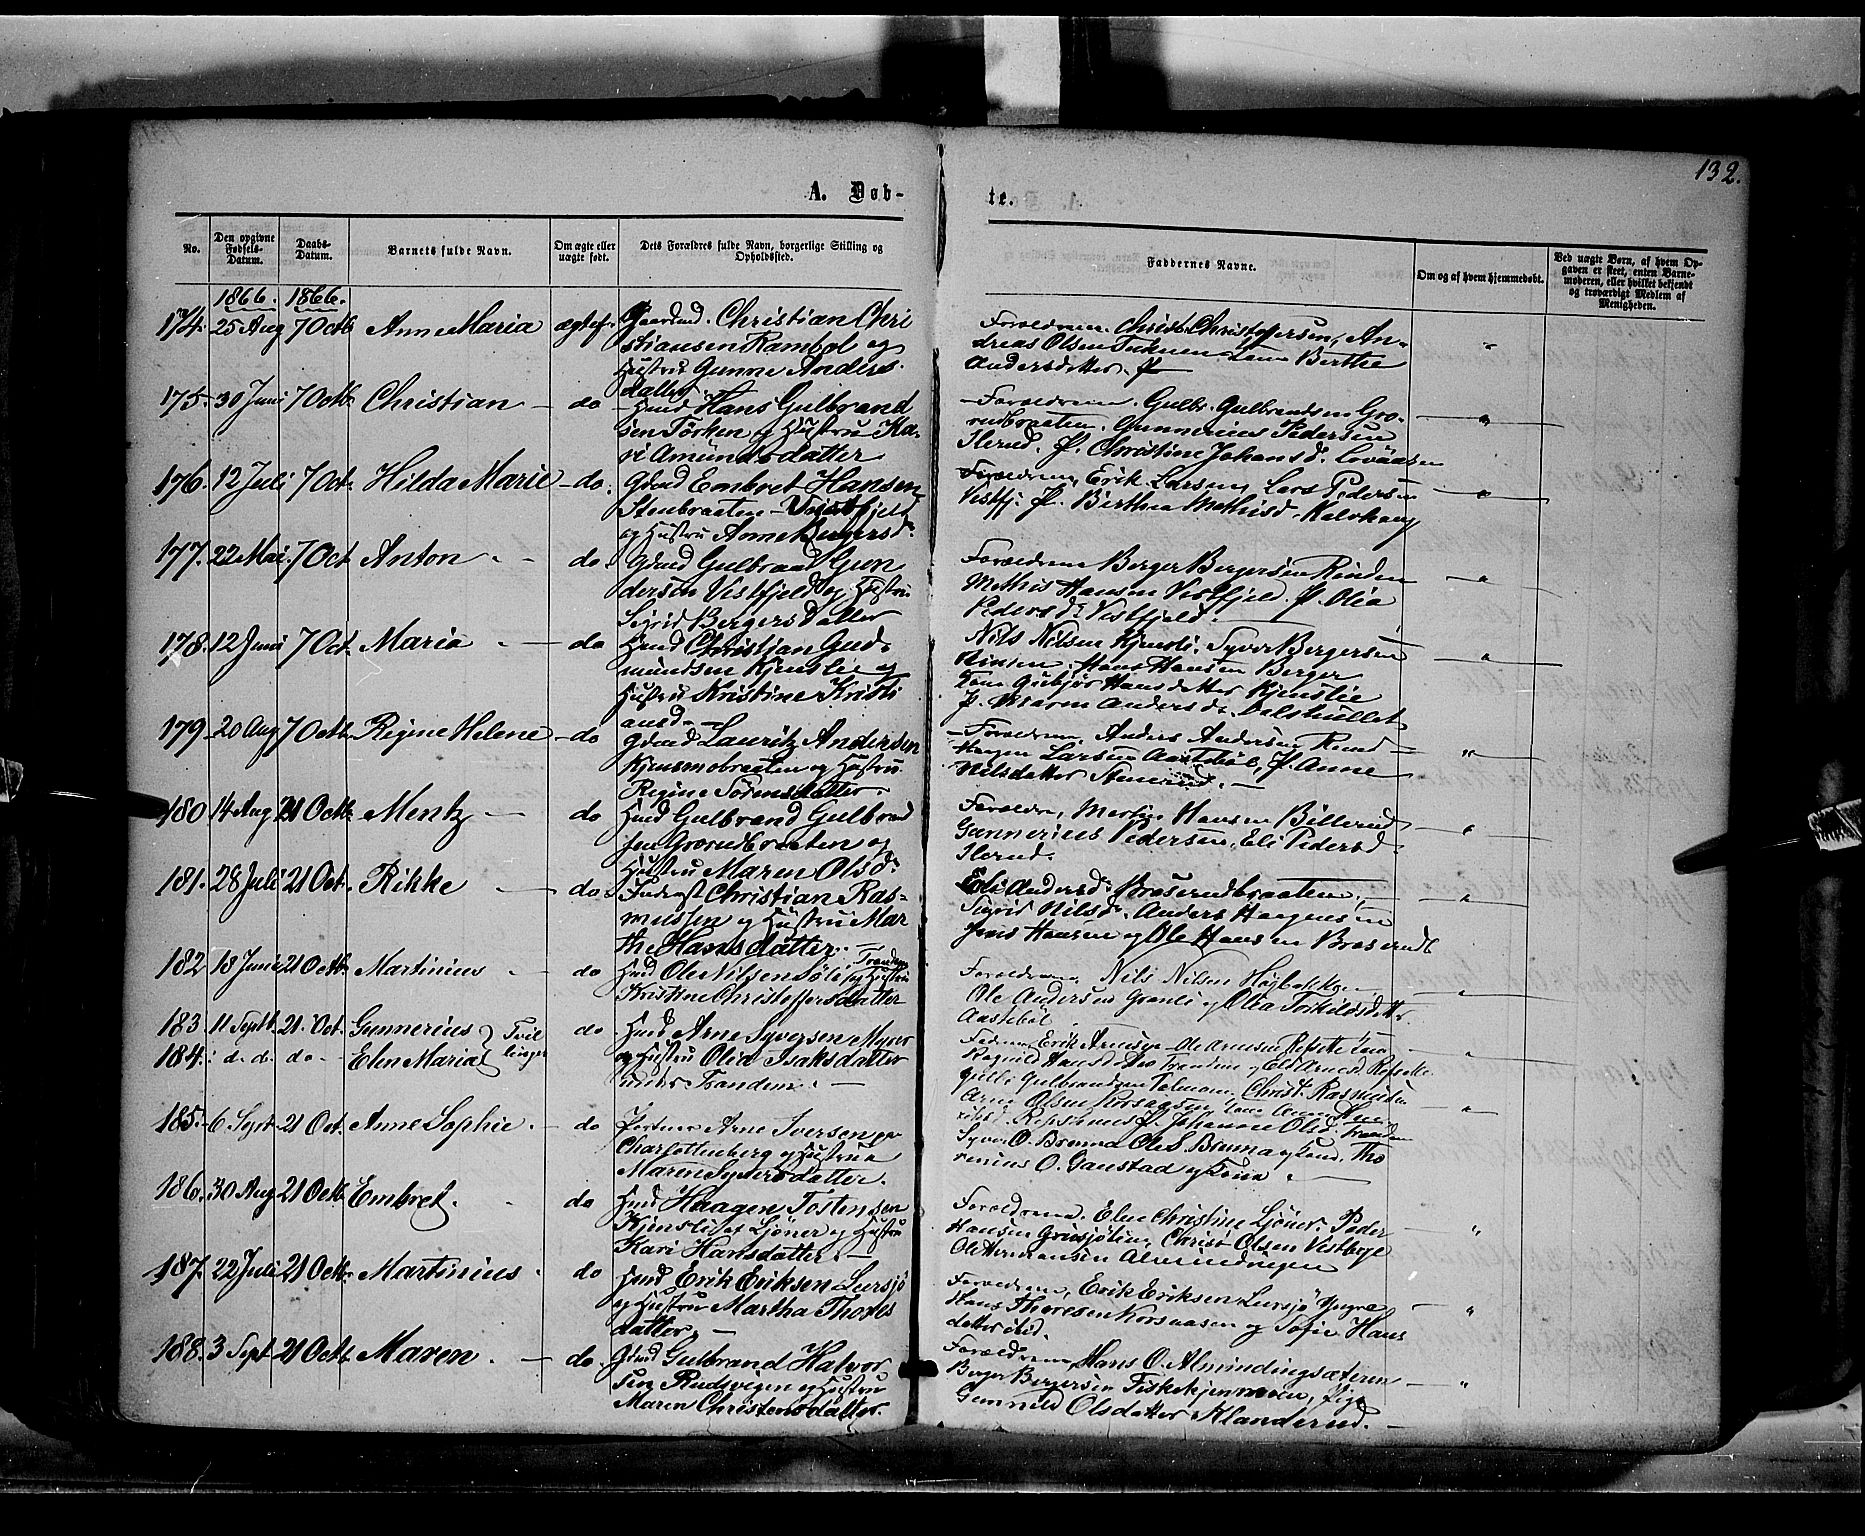 132.
A. Døb-
te.
No.
Den opgivne Fødsels-Datum.
Daabs-Datum.
Barnets fulde Navn.
Om ægte eller uægte født.
Dets Forældres fulde Navn, borgerlige Stilling og Opholdssted.
Faddernes Navne.
Om og af hvem hjemmedøbt.
Ved uægte Børn, af hvem Opgaven er skeet, enten Barnemoderen, eller hvilket bekjendt og troværdigt Medlem af Menigheden.
1866. 1866.
174. 25 Aug 7 Octb Anne Maria ægtef. Gaardmd. Christian Chri
stiansen Rambøl og
Hustru Gunne Anders
datter
Forældrene, Christ. Christoffersen, An-
dreas Olsen Berthe
Andersdatter
175. 30 Juni 7 Octb Christian - do Hmd Hans Gulbrand
sen Törken og Hustru Ka-
ri Amundsdatter
Forældrene. Gulbr. Gulbrandsen Gro-
rudbraaten. Gunnerius Pedersen
Ilerud. P. Christine Johansd.
176. 12 Juli 7 Oct. Hilda Marie - do. Gdmd Embret Hansen
Stenbraaten - Vestfjeld
og Hustru Anne Bergersd.
Forældrene, Erik Larsen, Lars Pedersen
Vestfj. P. Berthea Mathisd.
177. 22 Mai. 7 Oct Anton - do. Gdmd Gulbrand Gun
dersen Vestfjeld og Hustru
Sigrid Bergers Datter
Forældrene Berger Bergersen Rinden
Mathis Hansen Vestfjeld. P. Olia
Pedersd. Vestfjeld.
178. 12 Juni 7 Oct. Maria - do Hmd Christian Gud-
mundsen Kjenslie og
Hustru Kristine Kristi
ansd.
Nils Nilsen Kjensli. Syver Bergersen
Rinden, Hans Hansen Berger
Hansdatter Kjenslie
P. Maren Andersd. Dalshullet
179. 20 Aug 7 Octb. Regine Helene - do Gdmd Lauritz Andersen
Kjensmobraaten og Hustru
Regine Sörensdatter
Forældrene, Anders Andersen Rud
Haagen Larsen Aastebøl, P. Anne
Nilsdatter Stenrud.
180 14 Aug 21 Octb. Mentz - do Hmd Gulbrand Gulbrand
sen Grorudbraaten og
Hustru Maren Olsd.
Forældre, Martin Hansen Billerud
Gunnerius Pedersen, Eli Pedersd.
Ilerud.
181. 28 Juli 21 Oct. Rikke - do Inderst Christian Ras-
mussen og Hustru Mar
the Hansdatter.
Eli Andersd. Braserudbraaten,
Sigrid Nilsd. Anders Haagensen
Jens Hansen og Ole Hansen Braserud
182 18 Juni 21 Octb. Martinius - do Hmd Ole Nilsen Söli og Hustru
Kristine Christoffersdatter
Forældrene, Nils Nilsen Högbakken
Ole Andersen Granli og Olia Torkildsdatter
Aastebøl
183. 11 Septb. 21. Oct. Gunnerius } Tvil
184. d. d. do - Elen Maria } linger
do Hmd Arne Syversen Myrer
og Hustru Olia Isaksdatter
under Tranden.
Faderen, Erik Arnesen Ole Arnesen
185. 6 Sept 21 Oct. Anne Sophie. - do Portner Arne Iversen
Charlottenberg og Hustrue
Maren Syversdatter.
Syver O. Brenna Ole S. Brenna
O. Gaustad
186. 30 Aug. 21 Octb. Embret. - do Hmd Haagen Tostensen
Kjensli af Ljöner og Hustru
Kari Hansdatter.
Forældrene, Elen Christine Ljöner. Peder
Hansen Grasjölien, Christ Olsen Vestbye
Ole Hermansen Almindingen
187. 22 Juli 21 Octb. Martinius. do Hmd Erik Eriksen Lursjö
og Hustru Martha Thores
datter
Forældrene, Erik Eriksen Lursjö Yngre
Hans Thoresen Korsaasen og Sofie Hans
datter ibid.
188. 3 Sept 21 Octb Maren. - do. Gdmd Gulbrand Halvor
sen Rudsvigen og Hustru
Maren Christensdatter.
Forældrene, Hans O. Almindingsæteren
Berger Bergersen Fiskekjennmoen, Pige
Gunnild Olsdatter Klanderud.